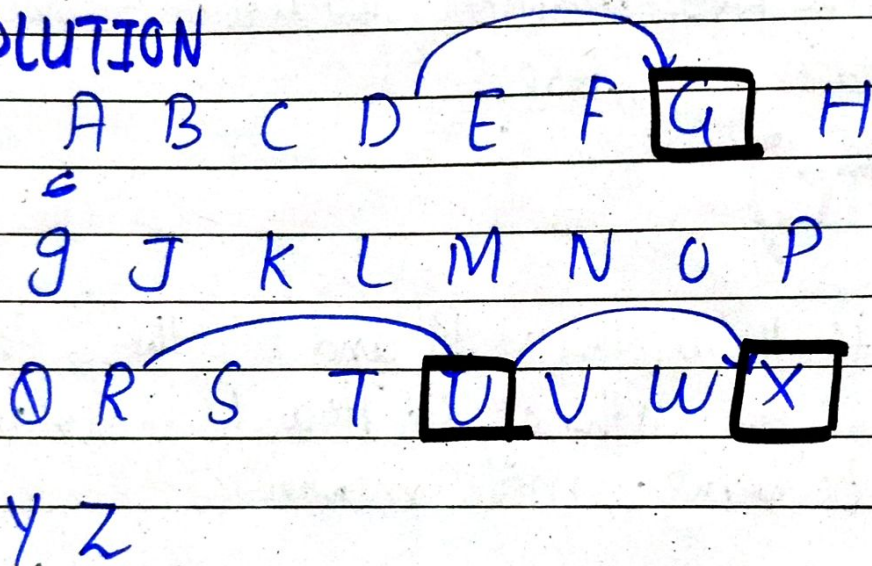 OLUTION
A B C D E F G H
g J K L M N O P
Q R S T U V W X
Y Z